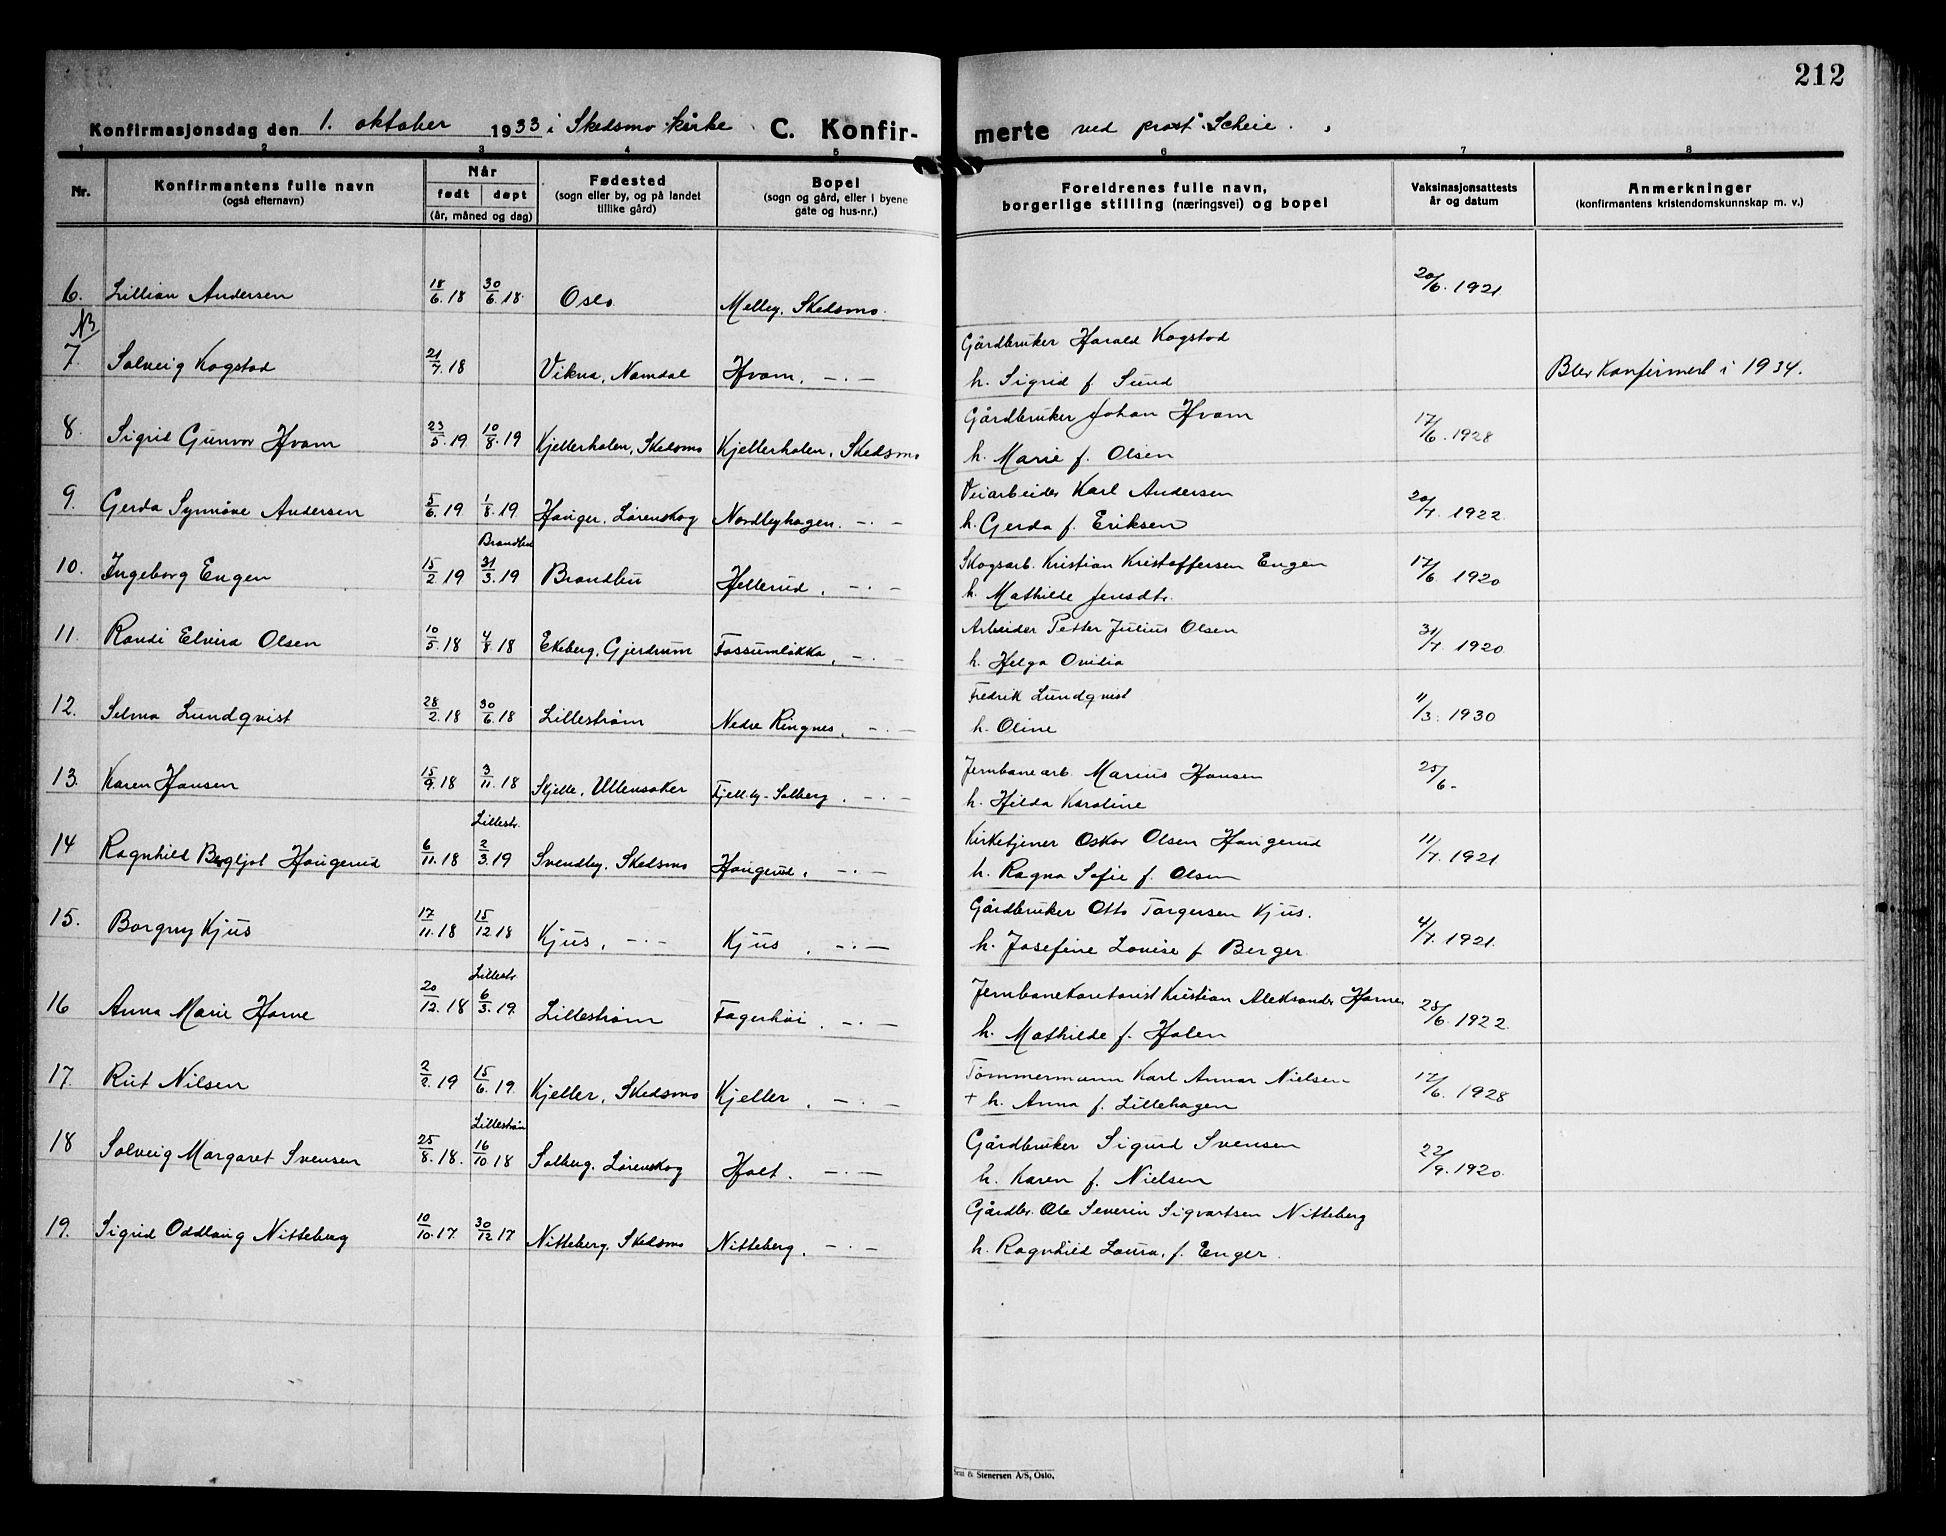 212
Konfirmasjonsdag den 1. oktober 1933 i Skedsmo kirke C. Konfir- merte ved prost Scheie.
1 2 3 4 5 6 7 8
Nr.
Konfirmantens fulle navn
(også efternavn)
Når
født døpt
(år, måned og dag)
Fødested
(sogn eller by, og på landet
tillike gård)
Bopel
(sogn og gård, eller i byene
gate og hus-nr.)
Foreldrenes fulle navn,
borgerlige stilling (næringsvei) og bopel
Vaksinasjonsattests
år og datum
Anmerkninger
(konfirmantens kristendomskunnskap m. v.)
6. Lillian Andersen 18/6. 18 30/6. 18. Oslo Melby, Skedsmo. 20/6. 1921
NB
7. Solveig Kogstad 21/7. 18 Vikna, Namdal Hvam, -·- Gårdbruker Harald Kogstad
h. Sigrid f. Sund Blev konfirmert i 1934.
8. Sigrid Gunvor Hvam 23/5. 19 10/8. 19 Kjellerholen, Skedsmo Kjellerholen, Skedsmo Gårdbruker Johan Hvam 17/6. 1928
h. Marie f. Olsen
9. Gerda Synnøve Andersen 5/6. 19 1/8. 19. Hauger, Lørenskog Nordbyhagen. -·- Veiarbeider Karl Andersen 20/7. 1922.
h. Gerda f. Eriksen
Brandbu
10. Ingeborg Engen 15/2. 19 31/3. 19 Brandbu Hellerud, -·- Skogsarb. Kristian Kristoffersen Engen 17/6 1920
h. Mathilde Jensdtr.
11. Randi Elvira Olsen 10/5. 18 4/8. 18 Ekeberg, Gjerdrum Fossumløkka, -·- Arbeider Petter Julius Olsen 31/7. 1920
h. Helga Ovidia
12. Selma Lundqvist 28/2. 18 30/6. 18 Lillestrøm Nedre Ringnes, -·- Fredrik Lundqvist 11/3. 1930
h. Oline
13. Karen Hansen 15/9. 18 3/11. 18 Skjelle, Ullensaker Fjellby-Solberg, -·- Jernbanearb. Marius Hansen 25/6-
h. Hilda Karoline
Lillestr.
14 Ragnhild Bergljot Haugerud 6/11. 18 2/3. 19 Svendby, Skedsmo Haugerud, -·- Kirketjener Oskar Olsen Haugerud 11/7. 1921
h. Ragna Sofie f. Olsen
15. Borgny Kjus 17/11. 18 15/12 18 Kjus, -·- Kjus, -·- Gårdbruker Otto Torgersen Kjus. 4/7. 1921.
h. Josefine Lovise f Berger
Lillestr.
16 Anna Marie Harne 20/12. 18 6/3. 19. Lillestrøm Fagerhøi, -·- Jernbanekontorist Kristian Aleksander Harne, 28/6. 1922.
h. Mathilde f. Holen
17. Rut Nilsen 2/2. 19 15/6. 19 Kjeller, Skedsmo Kjeller, -·- Tømmermann Karl Annar Nielsen 17/6. 1928
+ h. Anna f. Lillehagen
Lillestrøm
18 Solveig Margaret Svensen 25/8. 18. 16/10 18 Solberg, Lørenskog Holt. -·- Gårdbruker Sigurd Svensen 22/9. 1920.
h. Karen f. Nielsen
19. Sigrid Oddlaug Nitteberg 10/10. 17. 30/12 17 Nitteberg, Skedsmo Nitteberg, -·- Gårdbr. Ole Severin Sigvartsen Nitteberg
h. Ragnhild Laura, f. Enger.
& Stenersen A/S, Oslo.